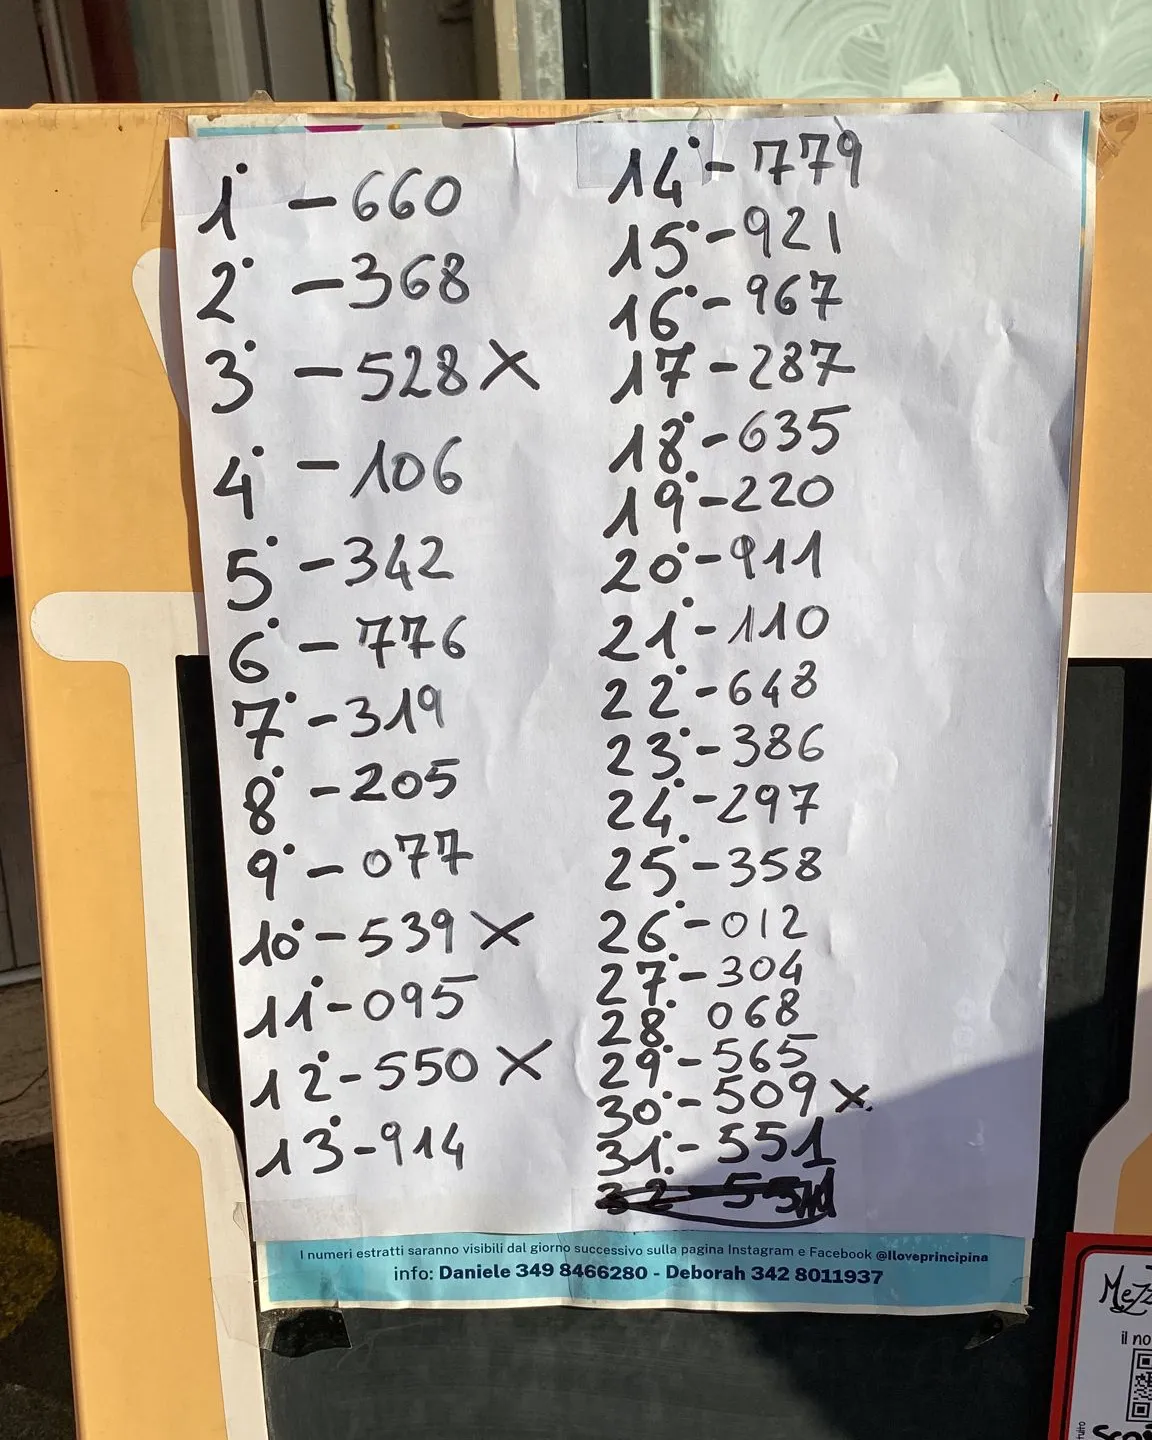 1° - 660
2° - 368
3° - 528 X
4° - 106
5° - 342
6° - 776
7° - 319
8° - 205
9° - 077
10° - 539 X
11° - 095
12° - 550 X
13° - 914
14° - 779
15° - 921
16° - 967
17° - 287
18° - 635
19° - 220
20° - 911
21° - 110
22° - 648
23° - 386
24° - 297
25° - 358
26° - 012
27° - 304
28° 068
29° - 565
30° - 509 X.
31° - 551
I numeri estratti saranno visibili dal giorno successivo sulla pagina Instagram e Facebook @Iloveprincipina
info: Daniele 349 8466280 - Deborah 342 8011937
il no